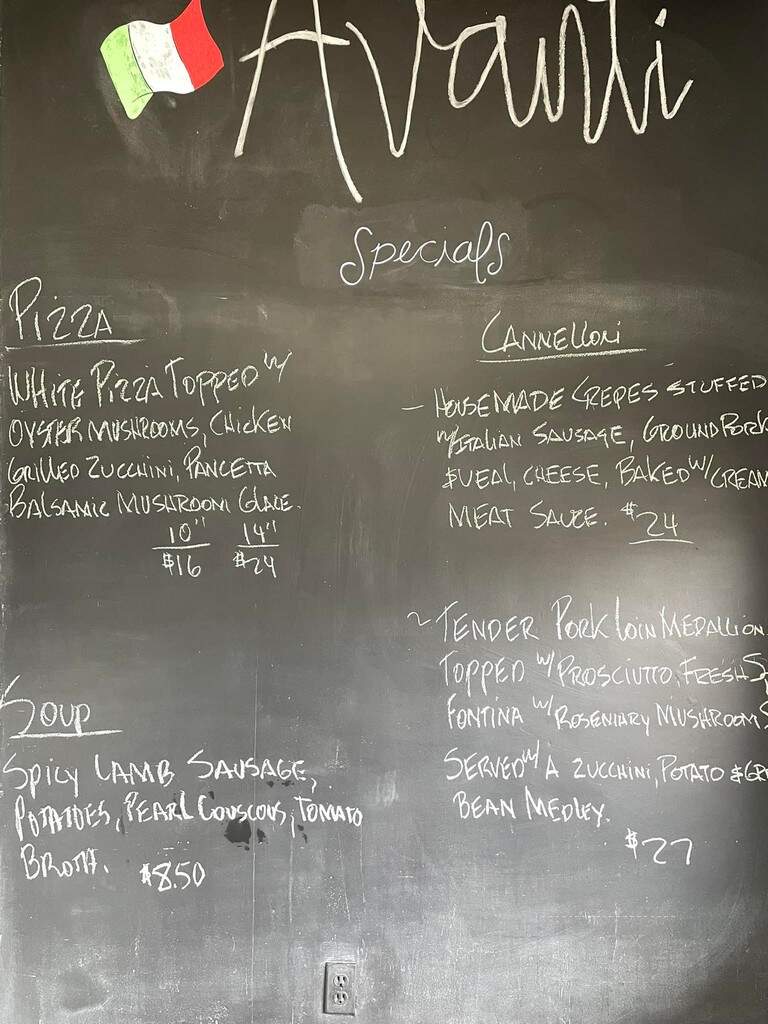 Avanti
Specials
Pizza
White Pizza Topped w/
Oyster Mushrooms, Chicken
Grilled Zucchini, Pancetta
Balsamic Mushroom Glace.
10" 14"
$16 $24
Soup
Spicy Lamb Sausage,
Potatoes, Pearl Couscous, Tomato
Broth. $8.50
Cannelloni
- House Made Crepes Stuffed
w/Italian Sausage, Ground Pork
& Veal, Cheese, Baked w/ Cream
Meat Sauce. $24
~ Tender Pork Loin Medallion
Topped w/ Prosciutto, Fresh
Fontina w/ Rosemary Mushroom
Served w/ A Zucchini, Potato &
Bean Medley.
$27